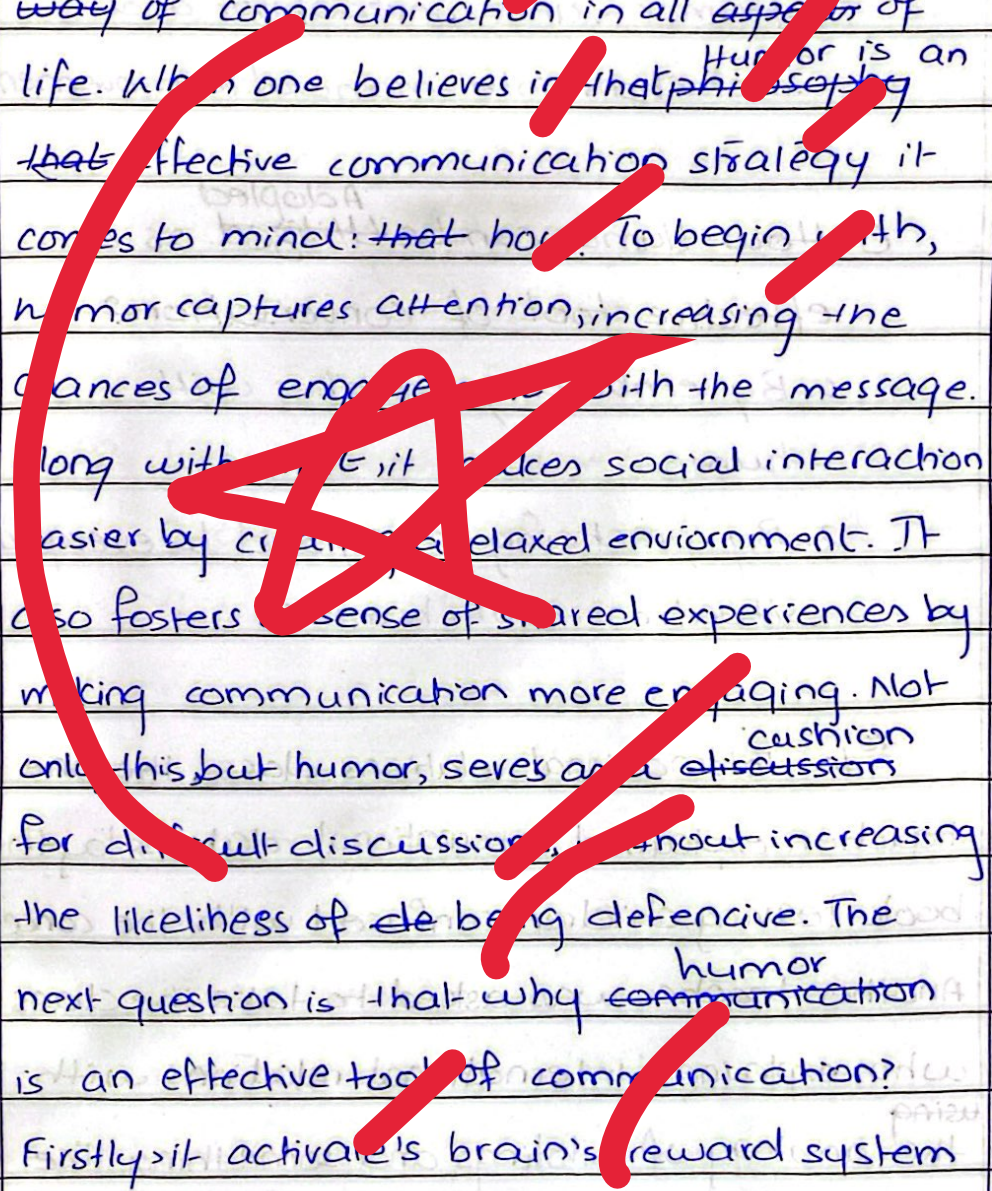 way of communication in all aspects of
life. When one believes in that philosophy Humor is an
that effective communication strategy it
comes to mind: that how? To begin with,
humor captures attention, increasing the
chances of with the message.
long with it, it makes social interaction
easier by creating a relaxed enviornment. It
also fosters a sense of shared experiences by
making communication more engaging. Not
only this, but humor, seves as a discussion cushion
for difficult discussions, without increasing
the likeliheess of de being defencive. The
next question is that why communication humor
is an effective tool of communication?
Firstly, it activate's brain's reward system